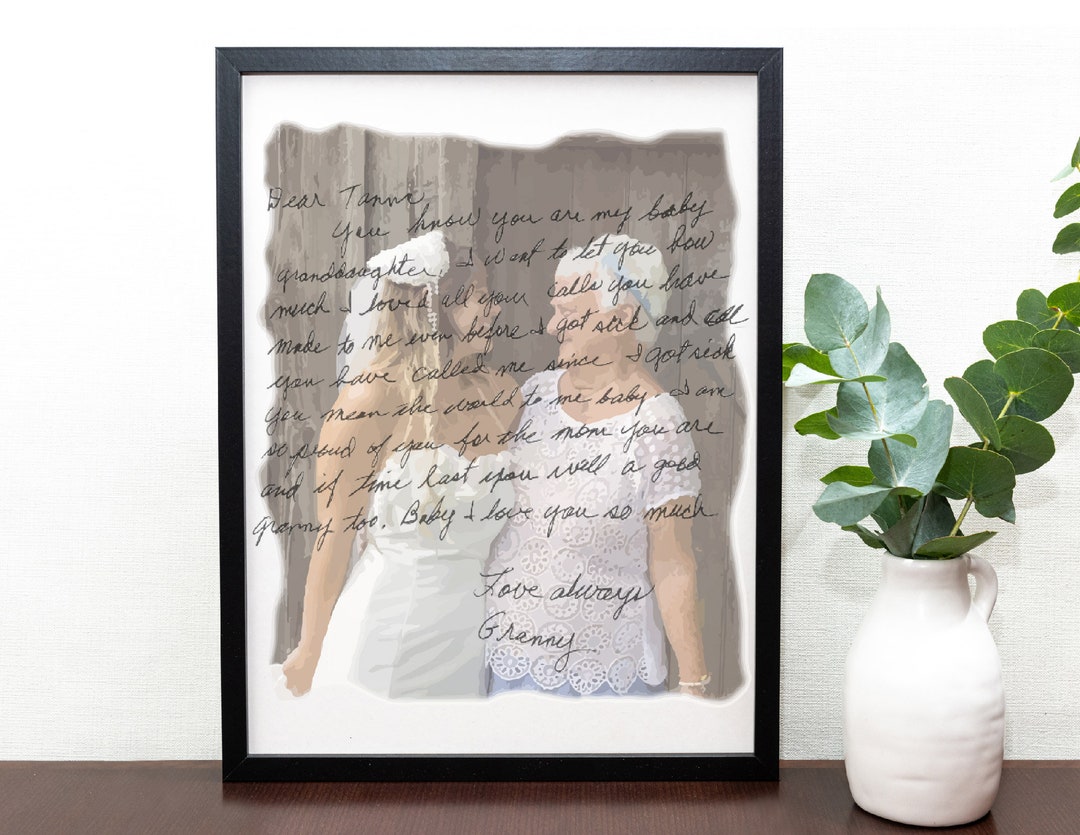 Dear Tanna,
You know you are my baby
granddaughter. I want to let you how
much I loved all your calls you have
made to me even before I got sick and call
you have called me since I got sick
you mean the world to me baby. I am
so proud of you for the mom you are
and if time last you will a good
granny too. Baby I love you so much
Love always
Granny